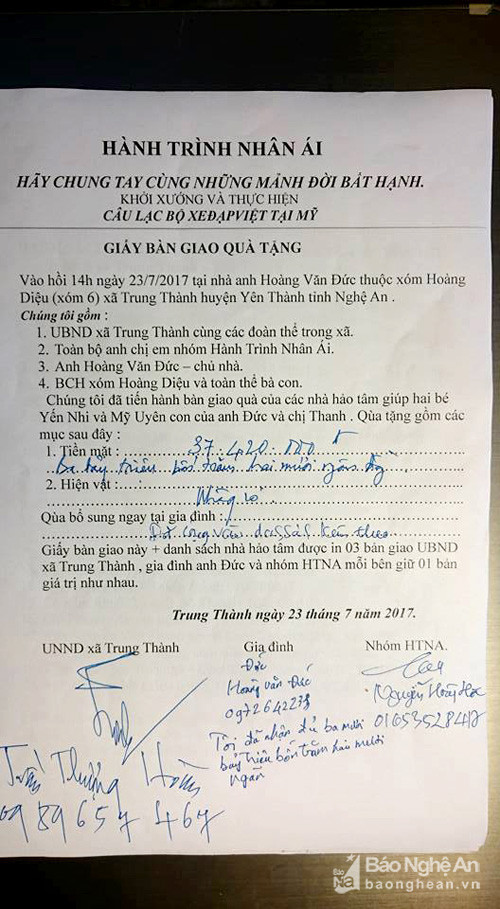 HÀNH TRÌNH NHÂN ÁI
HÃY CHUNG TAY CÙNG NHỮNG MẢNH ĐỜI BẤT HẠNH.
KHỞI XƯỚNG VÀ THỰC HIỆN
CÂU LẠC BỘ XEĐẠPVIỆT TẠI MỸ
GIẤY BÀN GIAO QUÀ TẶNG
Vào hồi 14h ngày 23/7/2017 tại nhà anh Hoàng Văn Đức thuộc xóm Hoàng
Diệu (xóm 6) xã Trung Thành huyện Yên Thành tỉnh Nghệ An .
Chúng tôi gồm :
1. UBND xã Trung Thành cùng các đoàn thể trong xã.
2. Toàn bộ anh chị em nhóm Hành Trình Nhân Ái.
3. Anh Hoàng Văn Đức – chủ nhà.
4. BCH xóm Hoàng Diệu và toàn thể bà con.
Chúng tôi đã tiến hành bàn giao quà của các nhà hảo tâm giúp hai bé
Yến Nhi và Mỹ Uyên con của anh Đức và chị Thanh . Qùa tặng gồm các
mục sau đây :
1. Tiền mặt : 37.420.000 đ
Ba bảy triệu bốn trăm hai mươi ngàn đồng
2. Hiện vật :
Qùa bổ sung ngay tại gia đình :
Giấy bàn giao này + danh sách nhà hảo tâm được in 03 bản giao UBND
xã Trung Thành , gia đình anh Đức và nhóm HTNA mỗi bên giữ 01 bản
giá trị như nhau.
Trung Thành ngày 23 tháng 7 năm 2017.
UNND xã Trung Thành Gia đình Nhóm HTNA.
Đức
Hoàng Văn Đức
0972642273
Tôi đã nhận đủ ba mươi
bảy triệu bốn trăm hai mươi
ngàn
Nguyễn Hoài
Trần Thượng Hoàn
0989657467
Báo Nghệ An
baonghean.vn